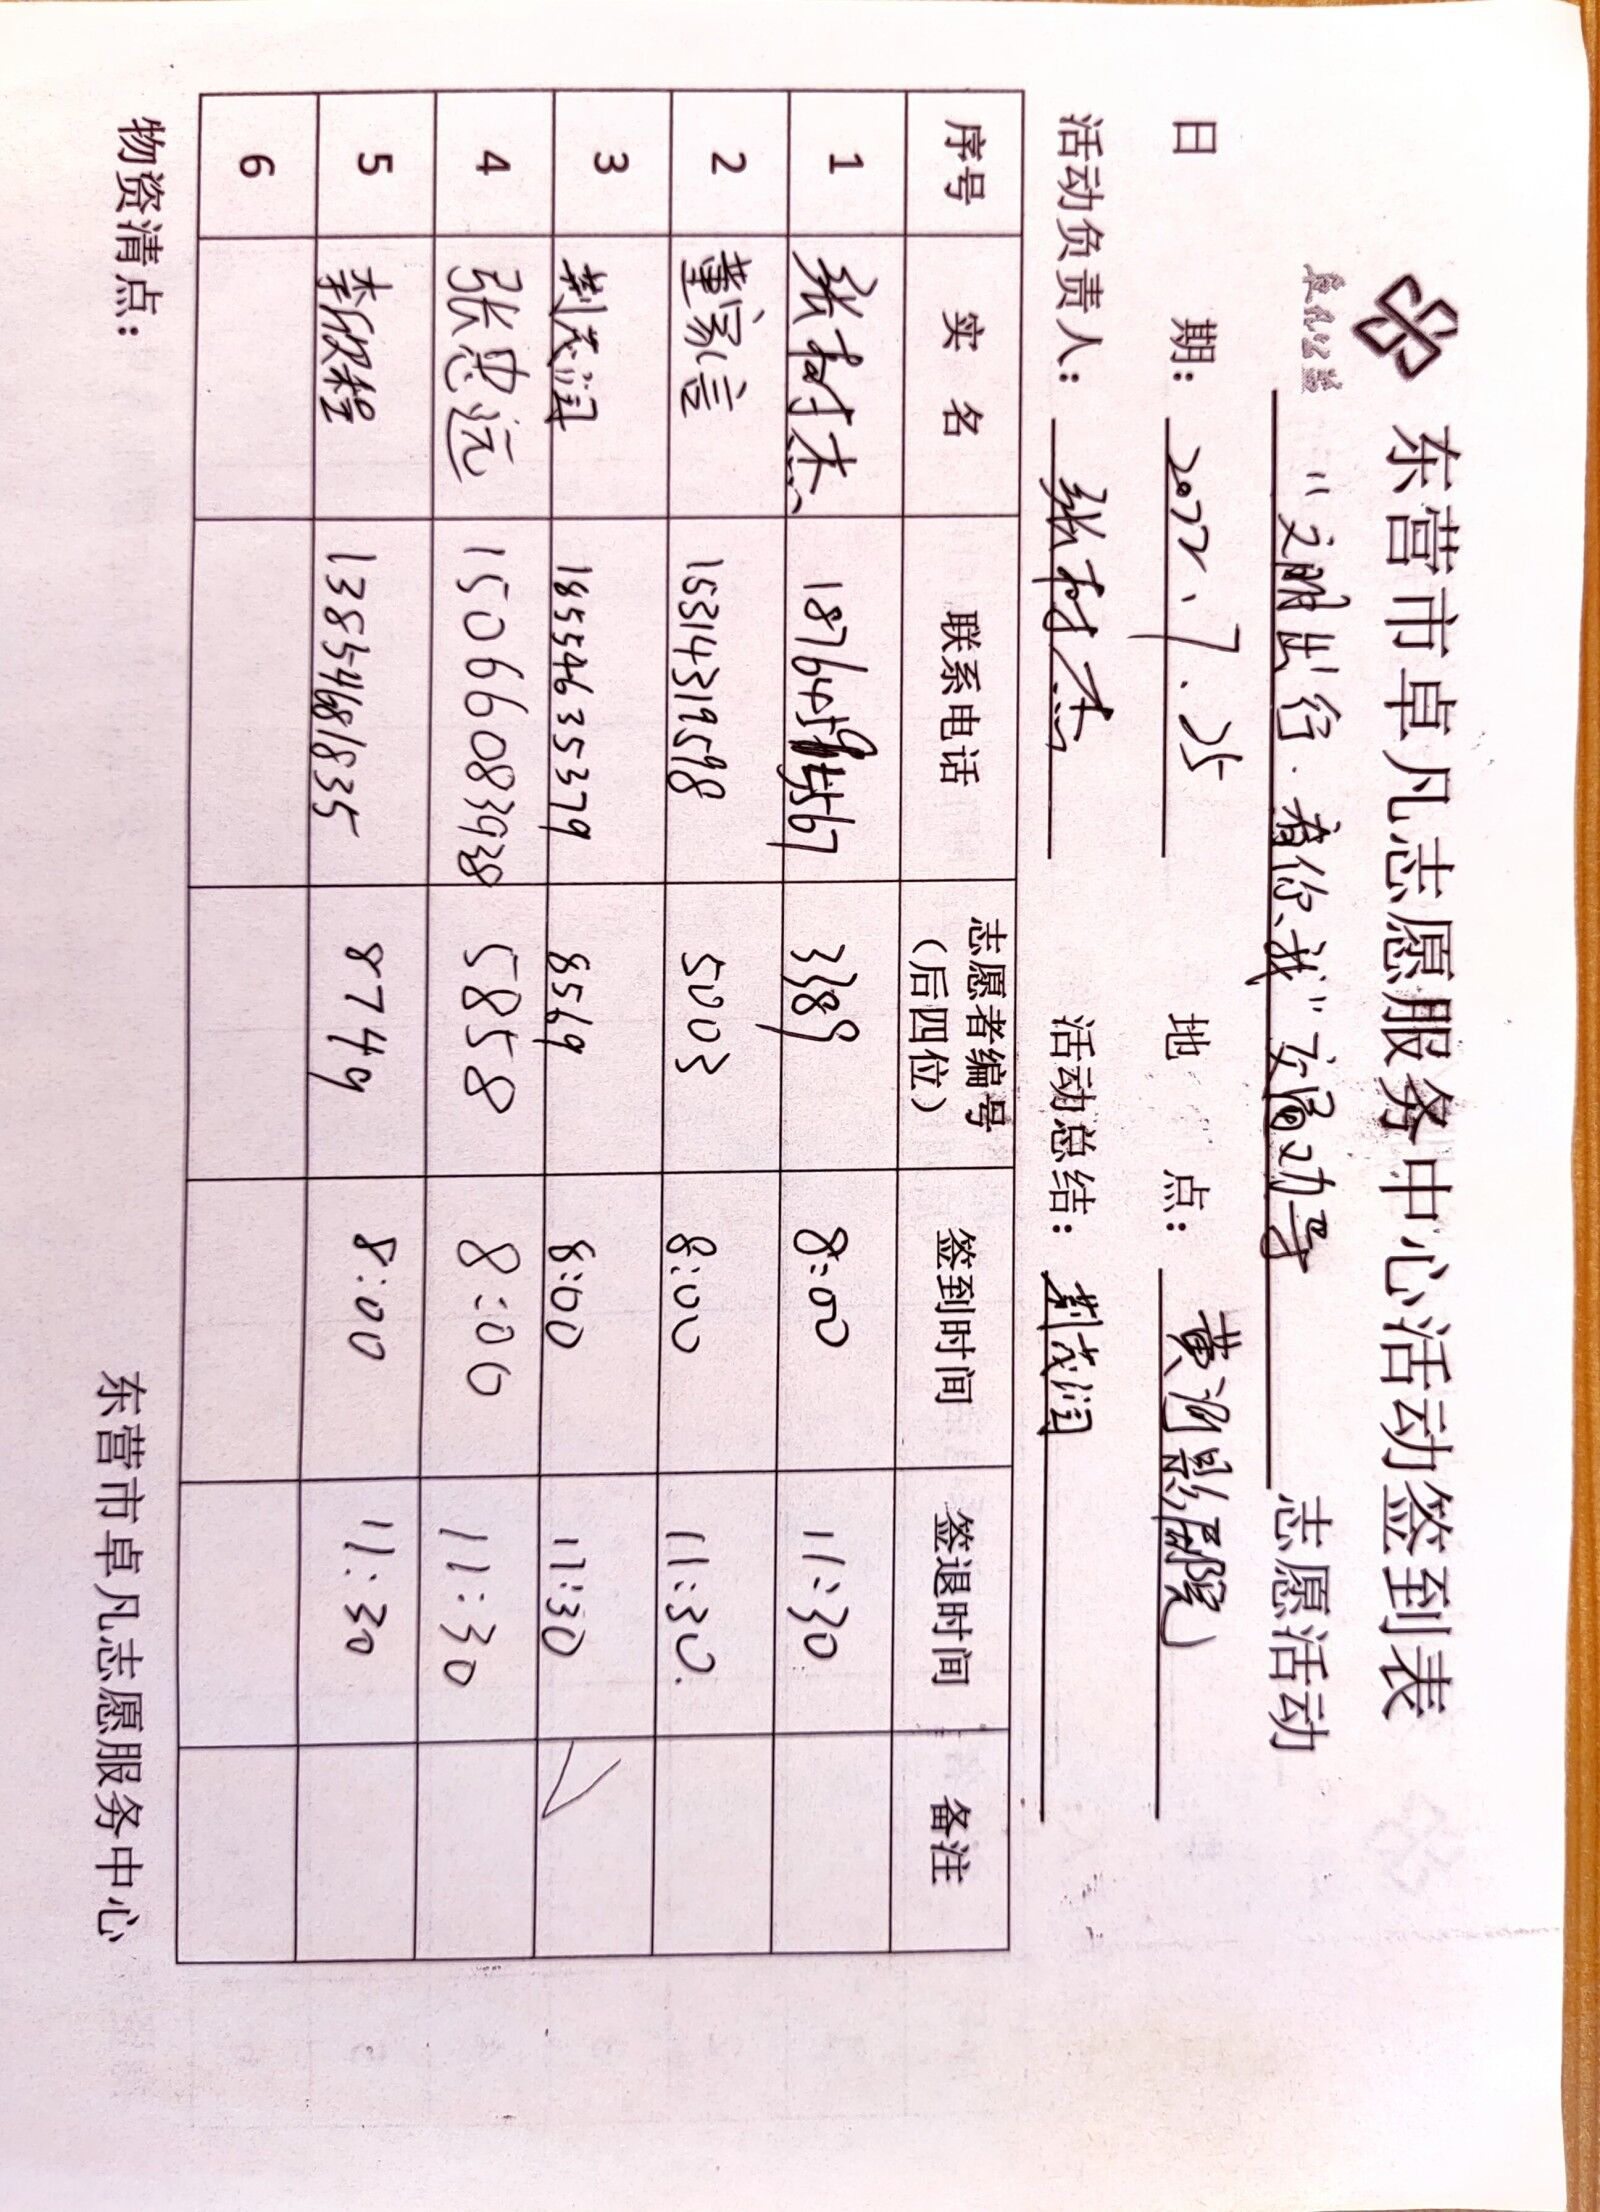 东营市卓凡志愿服务中心活动签到表
卓凡公益
"文明出行·有你、我"交通劝导 志愿活动
日 期: 2022.7.25 地 点: 黄河影剧院
活动负责人: 张树杰 活动总结: 荆茂润
序号 实 名 联系电话 志愿者编号（后四位） 签到时间 签退时间 备注
1 张树杰 3389 8:00 11:30
2 董家言 15314319598 5003 8:00 11:30.
3 荆茂润 18554635379 8569 8:00 11:30 √
4 张忠远 15066083938 5858 8:00 11:30
5 李欣程 13854681835 8749 8:00 11:30
6
物资清点：
东营市卓凡志愿服务中心